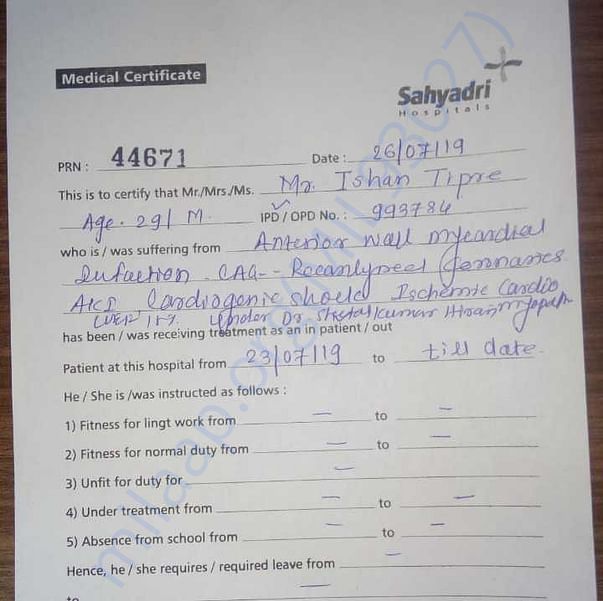 Medical Certificate
Sahyadri
Hospitals
PRN : 44671 Date : 26/07/19
This is to certify that Mr./Mrs./Ms. Mr. Ishan Tipre
Age. 29 / M. IPD / OPD No. : 993784
who is / was suffering from Anterior wall mycardial
Infaction CAG -- Recanlysed
AKI Cardiogenic Ischemic Cardio
LVEF 15% Under Dr Kumar myopath
has been / was receiving treatment as an in patient / out
Patient at this hospital from 23/07/19 to till date.
He / She is /was instructed as follows :
1) Fitness for lingt work from — to —
2) Fitness for normal duty from — to —
3) Unfit for duty for —
4) Under treatment from — to —
5) Absence from school from — to —
Hence, he / she requires / required leave from —
to —